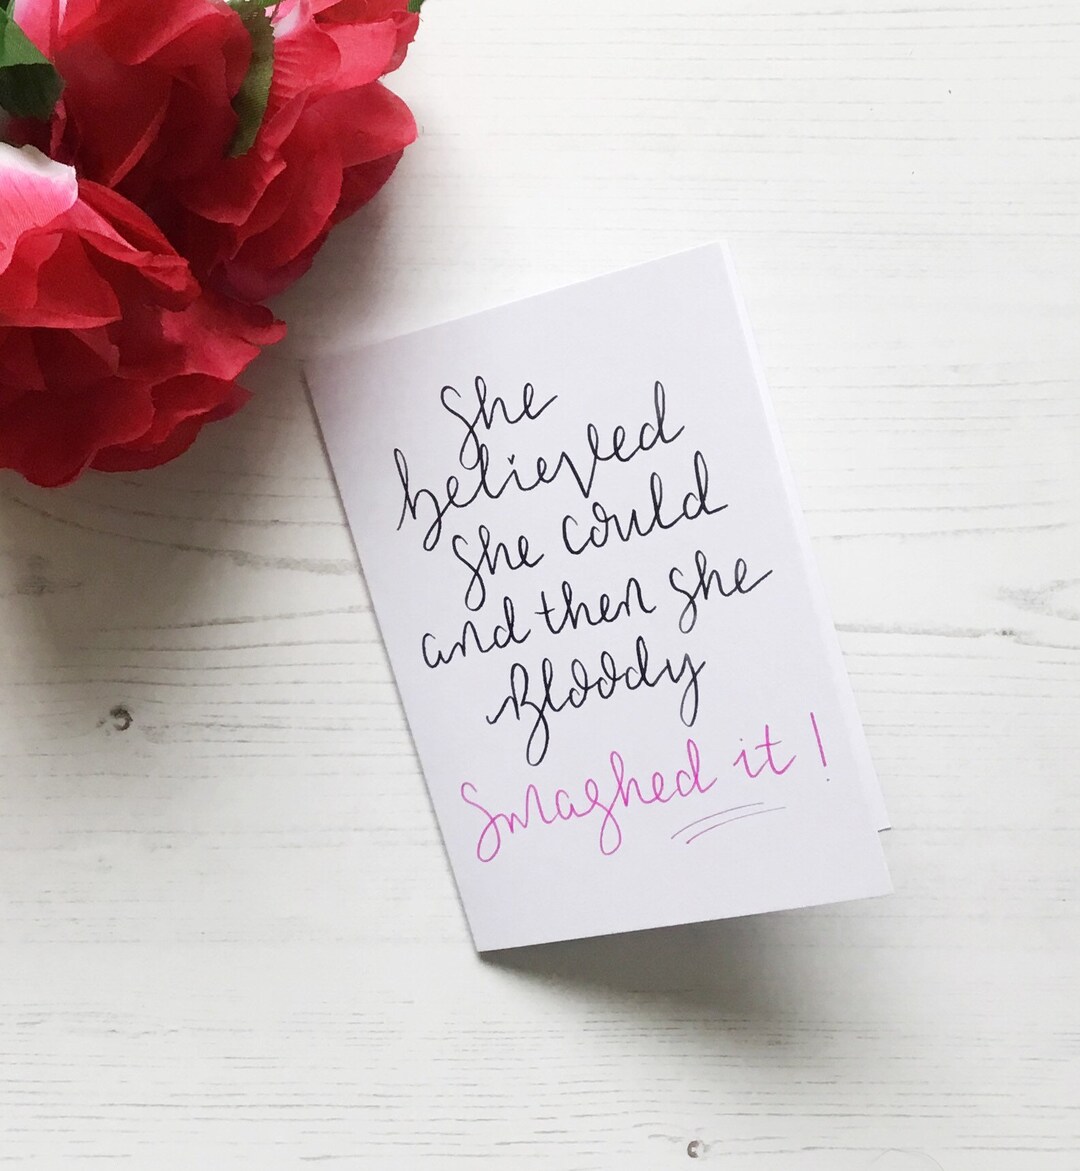 She
believed
She could
and then She
Bloody
Smashed it!